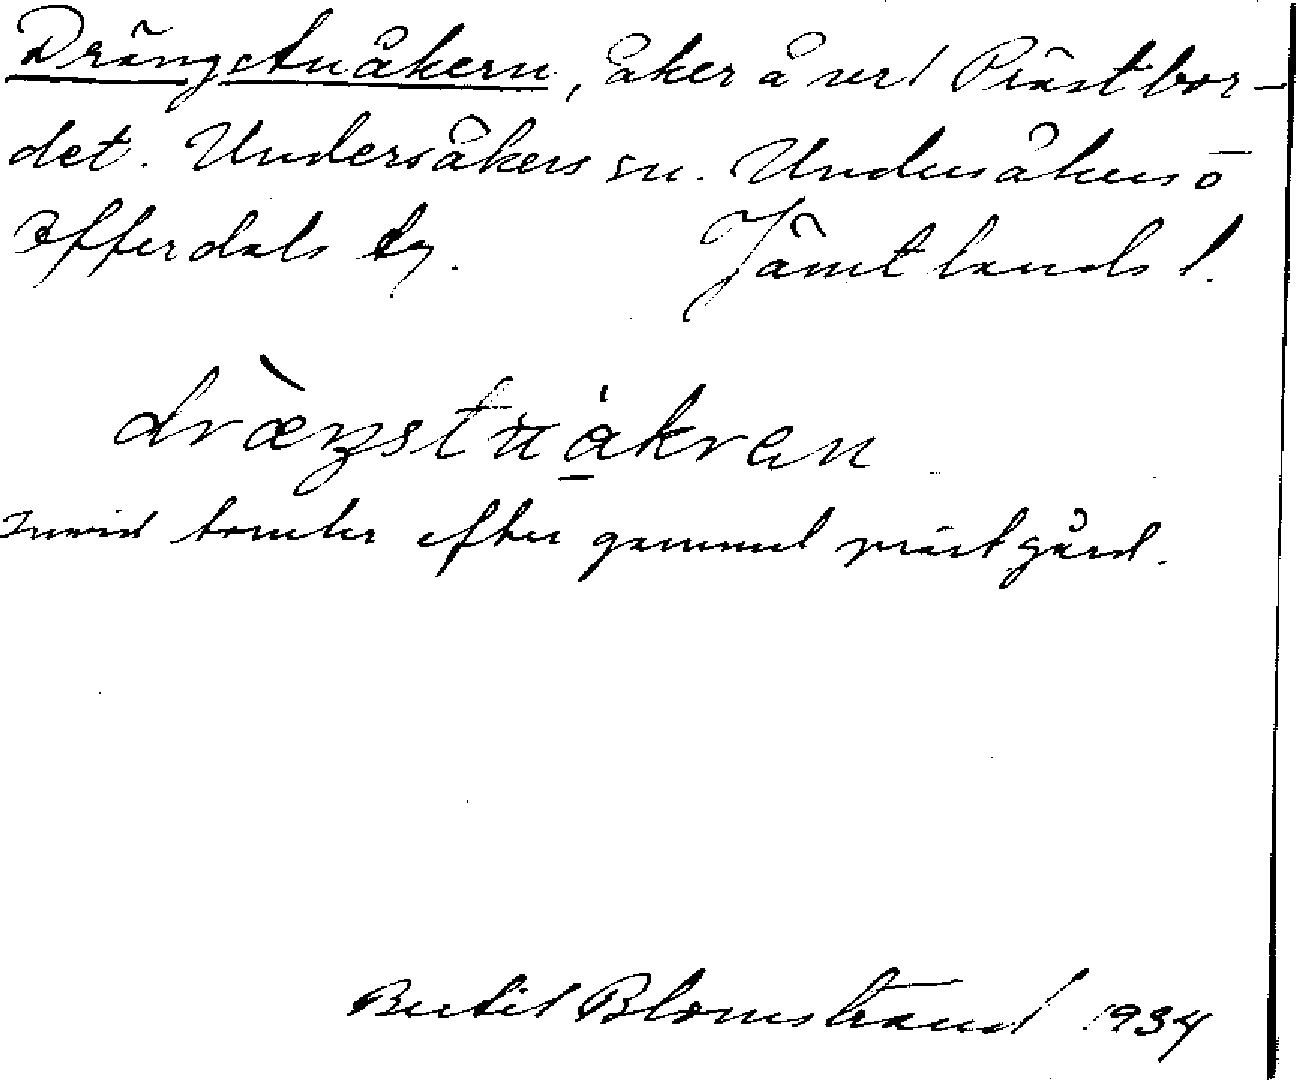 Drängstuåkern, åker å nr 1 Prästbor-
det. Undersåkers sn. Undersåkers o
Offerdals tg. Jämtlands l.
dræŋstuåkran
Invid tomter efter gammal prästgård.
Bertil Blomstrand 1934